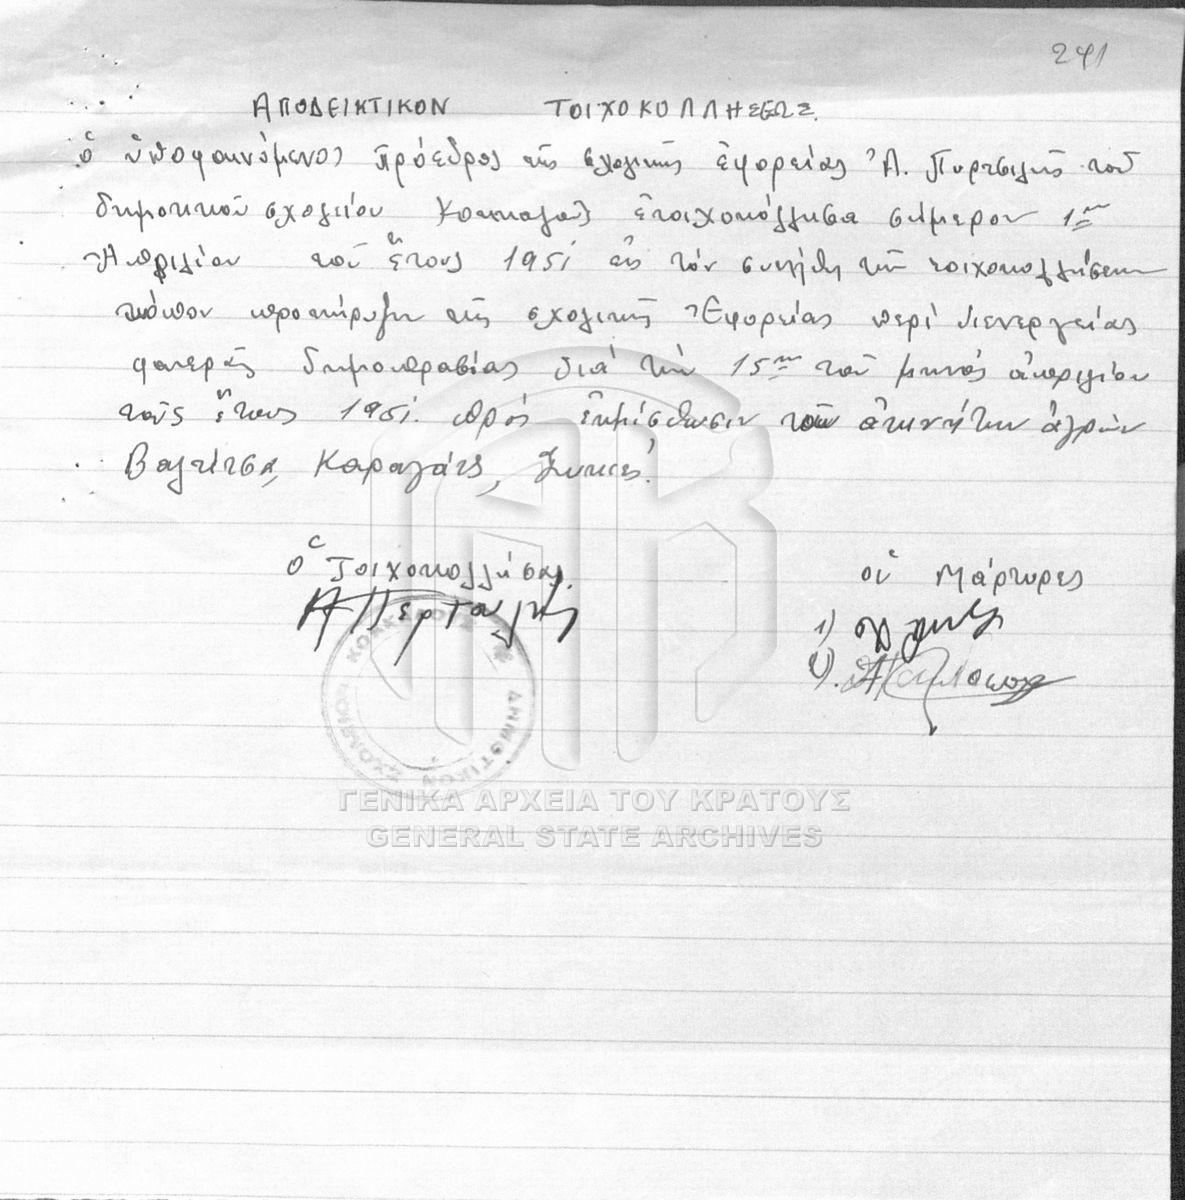 291
ΑΠΟΔΕΙΚΤΙΚΟΝ ΤΟΙΧΟΚΟΛΛΗΣΕΩΣ.
ὁ ὑποφαινόμενος πρόεδρος τῆς σχολικῆς ἐφορείας Ἀ. τοῦ
δημοτικοῦ σχολείου ἐτοιχοκόλλησα σήμερον 1ην
Ἀπριλίου τοῦ ἔτους 1951 εἰς τόν συνήθη τῶν τοιχοκολλήσεων
τόπον προκήρυξιν τῆς σχολικῆς Ἐφορείας περί διενεργείας
φανερᾶς δημοπρασίας διά τήν 15ην τοῦ μηνός ἀπριλίου
τοῦς ἔτους 1951. πρός ἐκμίσθωσιν τῶν ἀκινήτων ἀγρῶν
Βαλτίτσα, Καραγάτς, Συκιές.
ὁ Τοιχοκολλήσας.
οἱ Μάρτυρες
1)
2).
ΔΗΜΟΤΙΚΟΝ ΣΧΟΛΕΙΟΝ
ΓΕΝΙΚΑ ΑΡΧΕΙΑ ΤΟΥ ΚΡΑΤΟΥΣ
GENERAL STATE ARCHIVES